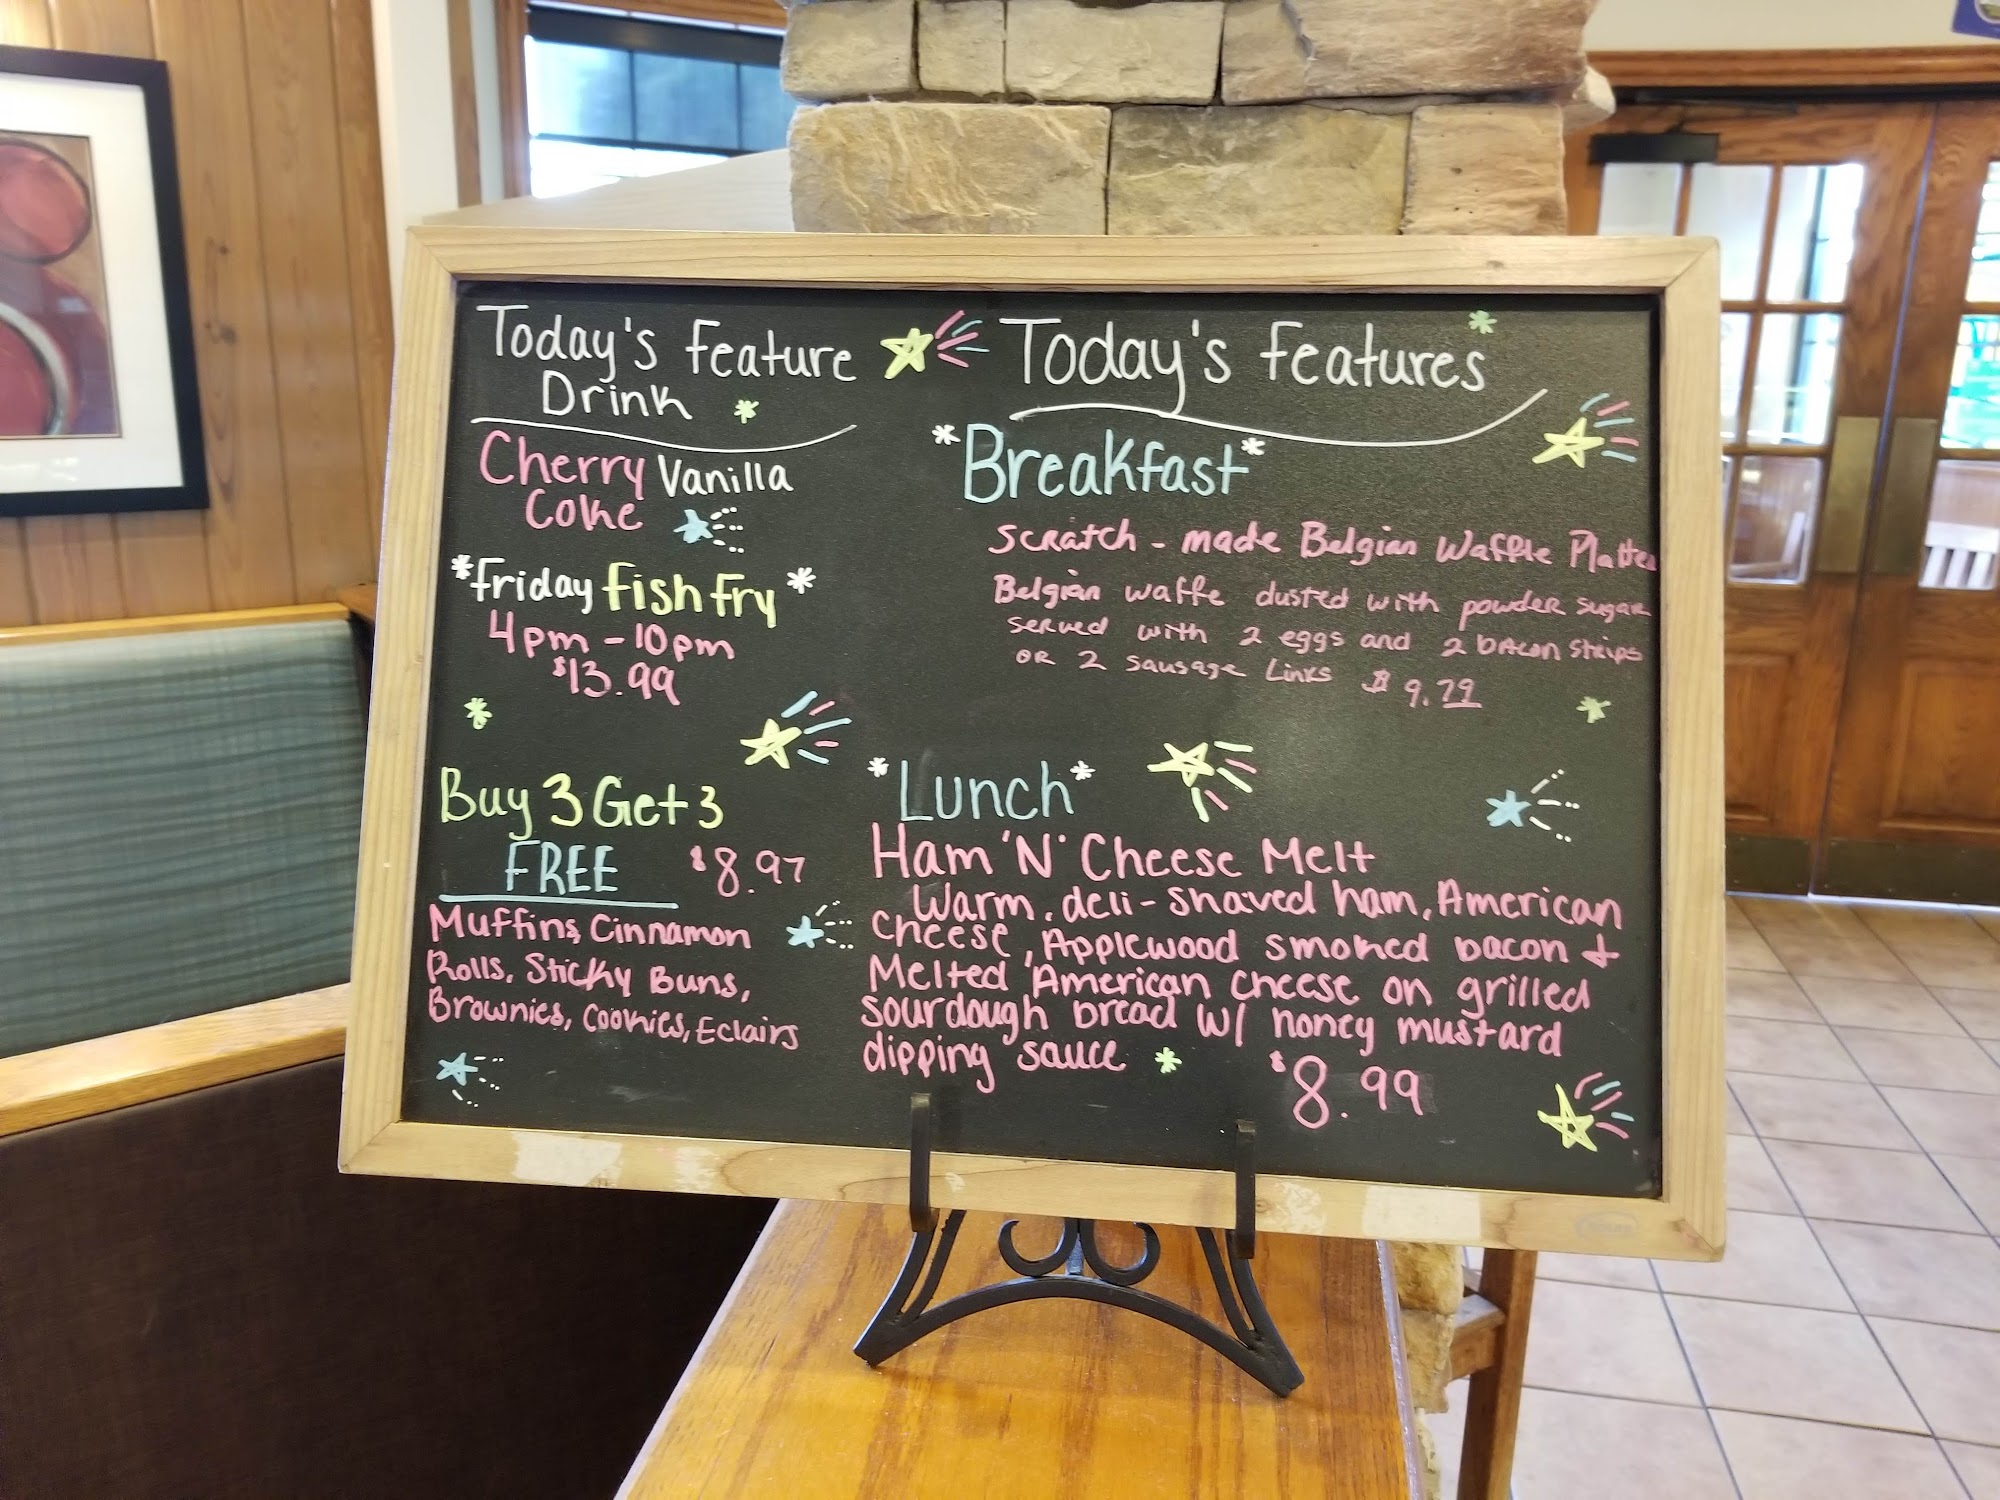 Today's Feature
Drink
Cherry Vanilla
Coke
*Friday Fish Fry*
4pm - 10pm
$13.99
Buy 3 Get 3
FREE $8.97
Muffins, Cinnamon
Rolls, Sticky Buns,
Brownies, Cookies, Eclairs
Today's Features
*Breakfast*
Scratch - made Belgian Waffle Platter
Belgian waffe dusted with powder sugar
served with 2 eggs and 2 bacon strips
or 2 sausage Links $9.79
*Lunch*
Ham 'N' Cheese Melt
Warm, deli-shaved ham, American
cheese, Applewood smoked bacon +
Melted American cheese on grilled
sourdough bread w/ honey mustard
dipping sauce
$8.99